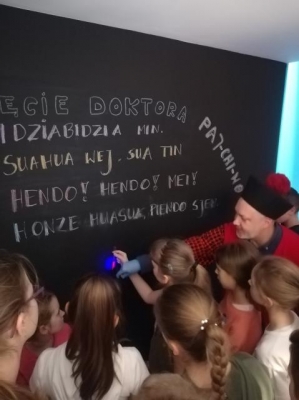 ĘCIE DOKTORA
I DZIABIDZIA MIN.
SUAHUA WEJ. SUA TIN
HENDO! HENDO! MEI!
HONZE HUASUA, PIENDO